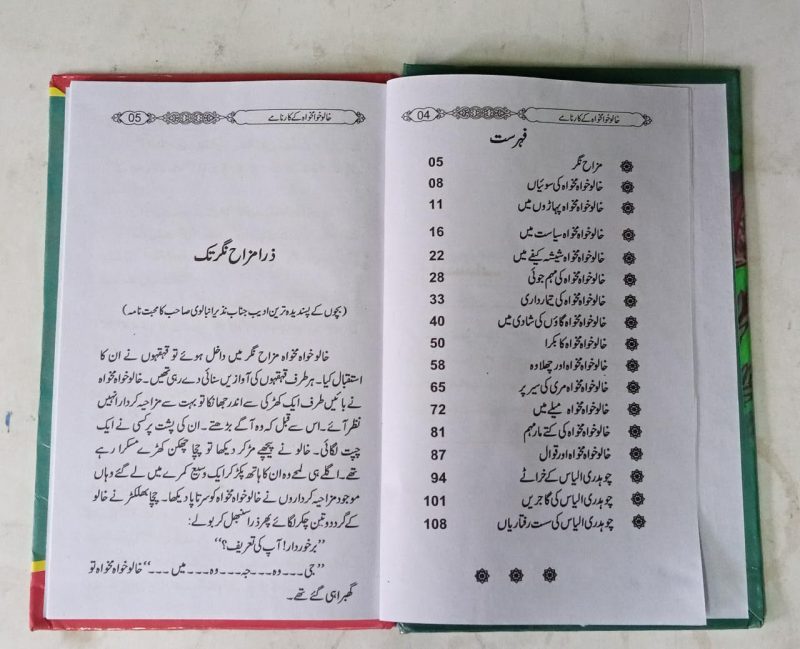 خالو خوامخواہ کے کارنامے 04
فہرست
مزاح نگر 05
خالو خواہ مخواہ کی سوئیاں 08
خالو خواہ مخواہ پہاڑوں میں 11
خالو خواہ مخواہ سیاست میں 16
خالو خواہ مخواہ شیشہ کیفے میں 22
خالو خواہ مخواہ کی مہم جوئی 28
خالو خواہ مخواہ کی تیمارداری 33
خالو خواہ مخواہ گاؤں کی شادی میں 40
خالو خواہ مخواہ کا بکرا 50
خالو خواہ مخواہ اور چھلاوہ 58
خالو خواہ مخواہ مری کی سیر پر 65
خالو خواہ مخواہ میلے میں 72
خالو خواہ مخواہ کی کتے مار مہم 81
خالو خواہ مخواہ اور قوال 87
چوہدری الیاس کے خراٹے 94
چوہدری الیاس کی گاجریں 101
چوہدری الیاس کی ست رفتاریاں 108
خالو خوامخواہ کے کارنامے 05
ذرا مزاح نگر تک
(بچوں کے پسندیدہ ترین ادیب جناب نذیر انبالوی صاحب کا محبت نامہ)
خالو خواہ مخواہ مزاح نگر میں داخل ہوئے تو قہقہوں نے ان کا
استقبال کیا۔ ہر طرف قہقہوں کی آوازیں سنائی دے رہی تھیں۔ خالو خواہ مخواہ
نے بائیں طرف ایک کھڑکی سے اندر جھانکا تو بہت سے مزاحیہ کردار انہیں
نظر آئے۔ اس سے قبل کہ وہ آگے بڑھتے۔ ان کی پشت پر کسی نے ایک
چپت لگائی۔ خالو نے پیچھے مڑ کر دیکھا تو چچا چھکن کھڑے مسکرا رہے
تھے۔ اگلے ہی لمحے وہ ان کا ہاتھ پکڑ کر ایک وسیع کمرے میں لے گئے وہاں
موجود مزاحیہ کرداروں نے خالو خواہ مخواہ کو سر تا پا دیکھا۔ چچا بھلکڑ نے خالو
کے گرد دو تین چکر لگائے پھر ذرا سنبھل کر بولے:
”برخوردار! آپ کی تعریف؟“
”جی ۔۔۔ وہ ۔۔۔ جہ ۔۔۔ وہ ۔۔۔ میں ۔۔۔“ خالو خواہ مخواہ تو
گھبرا ہی گئے تھے۔